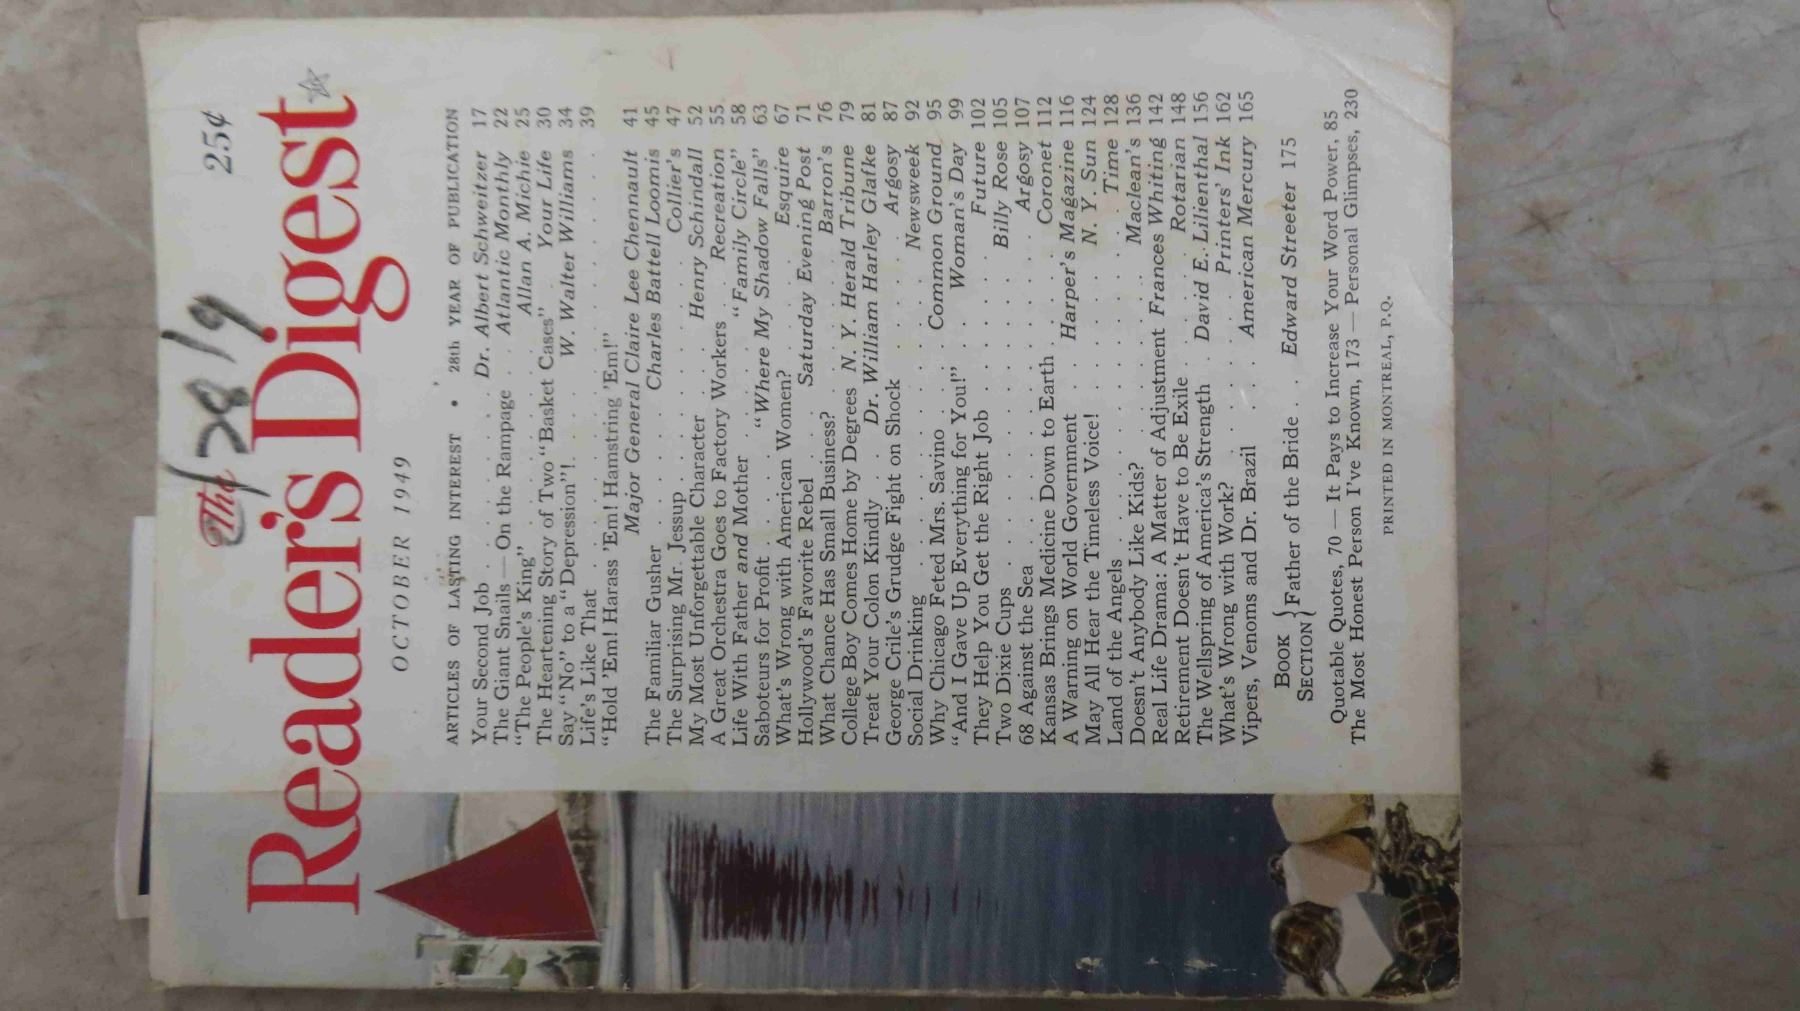 25¢
The
Reader's Digest
OCTOBER 1949
ARTICLES OF LASTING INTEREST • 28th YEAR OF PUBLICATION
Your Second Job . . . . . . Dr. Albert Schweitzer 17
The Giant Snails — On the Rampage . . Atlantic Monthly 22
"The People's King" . . . . . . Allan A. Michie 25
The Heartening Story of Two "Basket Cases" . . Your Life 30
Say "No" to a "Depression"! . . . . W. Walter Williams 34
Life's Like That . . . . . . . . . . 39
"Hold 'Em! Harass 'Em! Hamstring 'Em!"
Major General Claire Lee Chennault 41
The Familiar Gusher . . . . . Charles Battell Loomis 45
The Surprising Mr. Jessup . . . . . . . Collier's 47
My Most Unforgettable Character . . . Henry Schindall 52
A Great Orchestra Goes to Factory Workers . . Recreation 55
Life With Father and Mother . . . . "Family Circle" 58
Saboteurs for Profit . . . . "Where My Shadow Falls" 63
What's Wrong with American Women? . . . . Esquire 67
Hollywood's Favorite Rebel . . . Saturday Evening Post 71
What Chance Has Small Business? . . . . . Barron's 76
College Boy Comes Home by Degrees N. Y. Herald Tribune 79
Treat Your Colon Kindly . . . Dr. William Harley Glafke 81
George Crile's Grudge Fight on Shock . . . . Argosy 87
Social Drinking . . . . . . . . . Newsweek 92
Why Chicago Feted Mrs. Savino . . . Common Ground 95
"And I Gave Up Everything for You!" . . Woman's Day 99
They Help You Get the Right Job . . . . . Future 102
Two Dixie Cups . . . . . . . . . Billy Rose 105
68 Against the Sea . . . . . . . . . Argosy 107
Kansas Brings Medicine Down to Earth . . . Coronet 112
A Warning on World Government . . Harper's Magazine 116
May All Hear the Timeless Voice! . . . . N. Y. Sun 124
Land of the Angels . . . . . . . . . Time 128
Doesn't Anybody Like Kids? . . . . . Maclean's 136
Real Life Drama: A Matter of Adjustment Frances Whiting 142
Retirement Doesn't Have to Be Exile . . . . Rotarian 148
The Wellspring of America's Strength . David E. Lilienthal 156
What's Wrong with Work? . . . . . Printers' Ink 162
Vipers, Venoms and Dr. Brazil . . . American Mercury 165
BOOK SECTION { Father of the Bride . . Edward Streeter 175
Quotable Quotes, 70 — It Pays to Increase Your Word Power, 85
The Most Honest Person I've Known, 173 — Personal Glimpses, 230
PRINTED IN MONTREAL, P.Q.